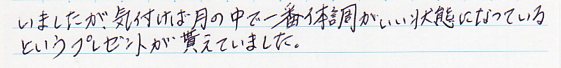 いましたが、気付けば月の中で一番体調がいい状態になっている
というプレゼントが貰えていました。